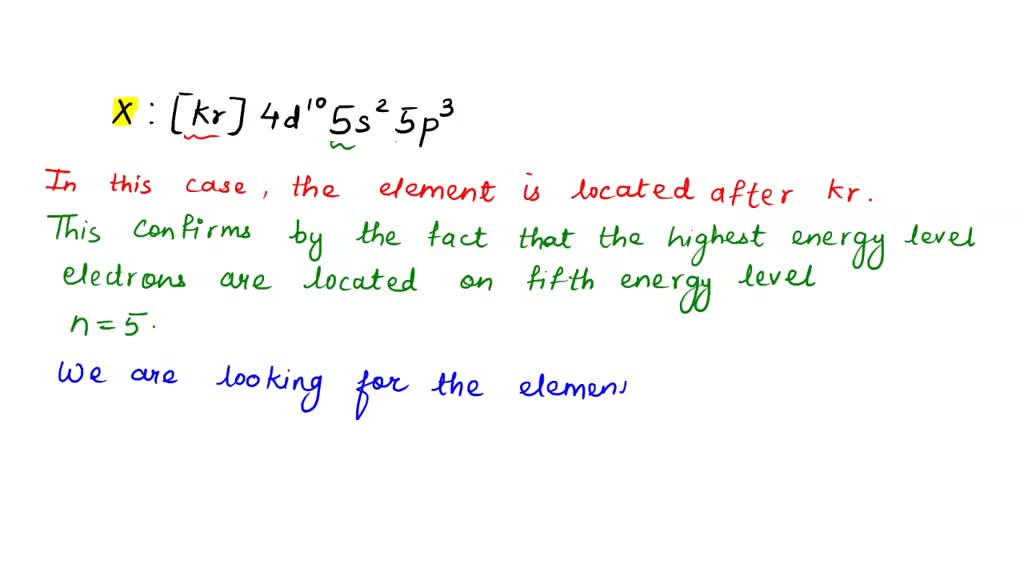 X : [Kr] 4d¹⁰ 5s² 5p³
In this case, the element is located after kr.
This confirms by the fact that the highest energy level
electrons are located on fifth energy level
n = 5.
We are looking for the elemen